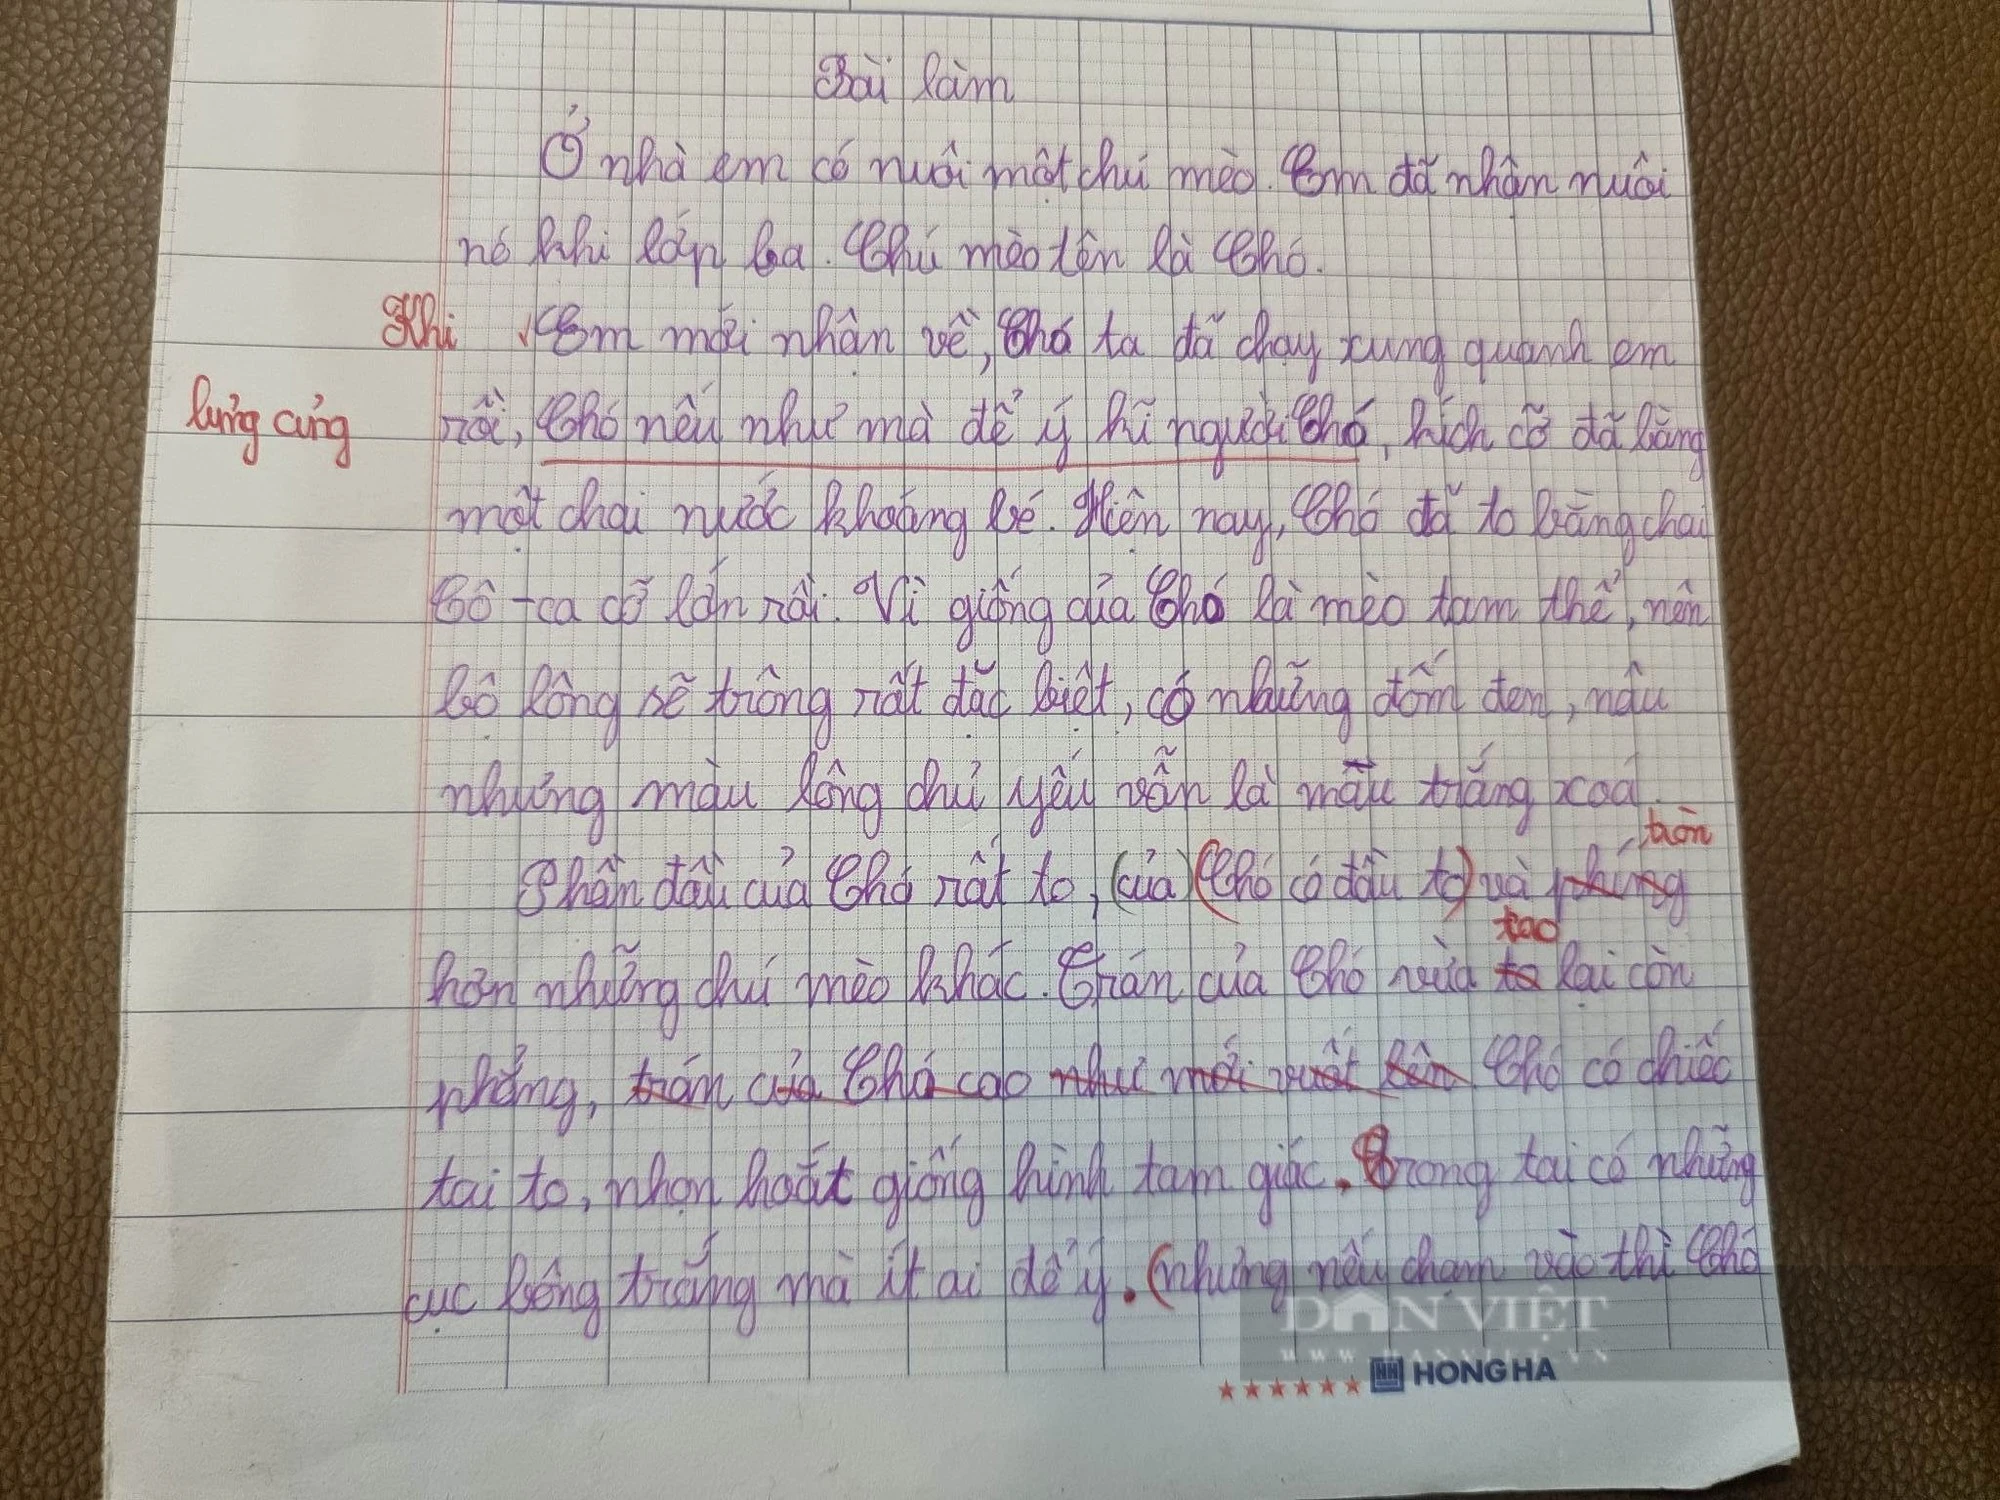 Bài làm
Ở nhà em có nuôi một chú mèo. Em đã nhận nuôi
nó khi lớp ba. Chú mèo tên là Chó.
Khi Em mới nhận về, Chó ta đã chạy xung quanh em
lủng củng rồi, Chó nếu như mà để ý kĩ người Chó, kích cỡ đã bằng
một chai nước khoáng bé. Hiện nay, Chó đã to bằng chai
Cô-ca cỡ lớn rồi. Vì giống của Chó là mèo tam thể, nên
bộ lông sẽ trông rất đặc biệt, có những đốm đen, nâu
nhưng màu lông chủ yếu vẫn là mầu trắng xoá.
tròn
Phần đầu của Chó rất to, (của) (Chó có đầu to) và phúng
tao
hơn những chú mèo khác. Trán của Chó vừa to lại còn
phẳng, trán của Chó cao như mới vuốt lên Chó có chiếc
tai to, nhọn hoắt giống hình tam giác. Trong tai có những
cục bông trắng mà ít ai để ý. (nhưng nếu chạm vào thì Chó
DÂN VIỆT
WWW.DANVIET.VN
HONG HA